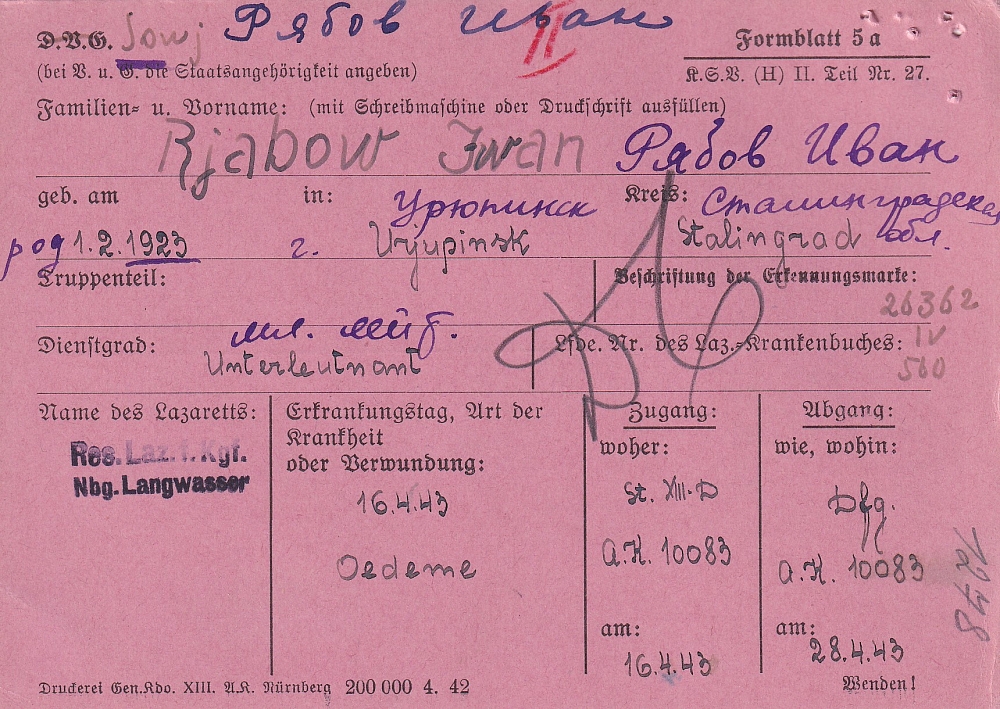 D.V.G. Sowj Рябов Иван II
Formblatt 5 a
(bei V. u. G. die Staatsangehörigkeit angeben)
K.S.V. (H) II. Teil Nr. 27.
Familien- u. Vorname: (mit Schreibmaschine oder Druckschrift ausfüllen)
Rjabow Iwan Рябов Иван
geb. am in: Урюпинск Kreis: Сталинградская
род 1.2.1923 г. Urjupinsk Stalingrad обл.
Truppenteil: Beschriftung der Erkennungsmarke:
26362
мл. лейт.
IV
Dienstgrad: Lfde. Nr. des Laz.-Krankenbuches:
Unterleutnant 560
Name des Lazaretts:
Res. Laz. f. Kgf.
Nbg. Langwasser
Erkrankungstag, Art der
Krankheit
oder Verwundung:
16.4.43
Oedeme
Zugang:
woher:
St. XIII-D
A.K. 10083
am:
16.4.43
Abgang:
wie, wohin:
Dfg.
A.K. 10083
am:
28.4.43
Wenden!
Druckerei Gen.Kdo. XIII. A.K. Nürnberg 200 000 4. 42